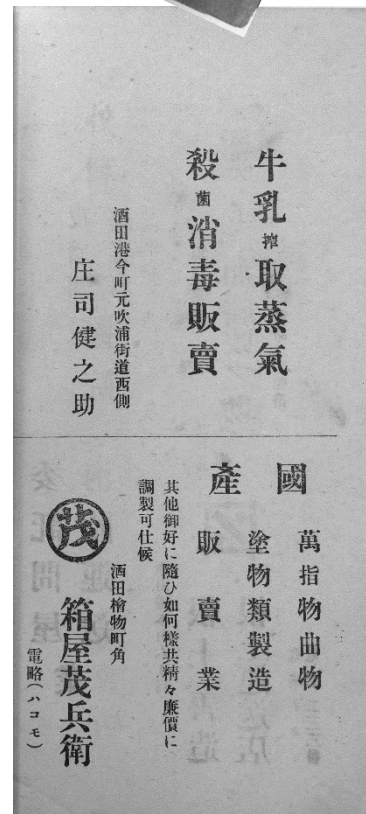 牛乳搾取蒸氣
殺菌消毒販賣
酒田港今町元吹浦街道西側
庄司健之助
國產
萬指物曲物
塗物類製造
販賣業
其他御好に隨ひ如何樣共精々廉價に
調製可仕候
酒田檜物町角
茂
箱屋茂兵衛
電略(ハコモ)